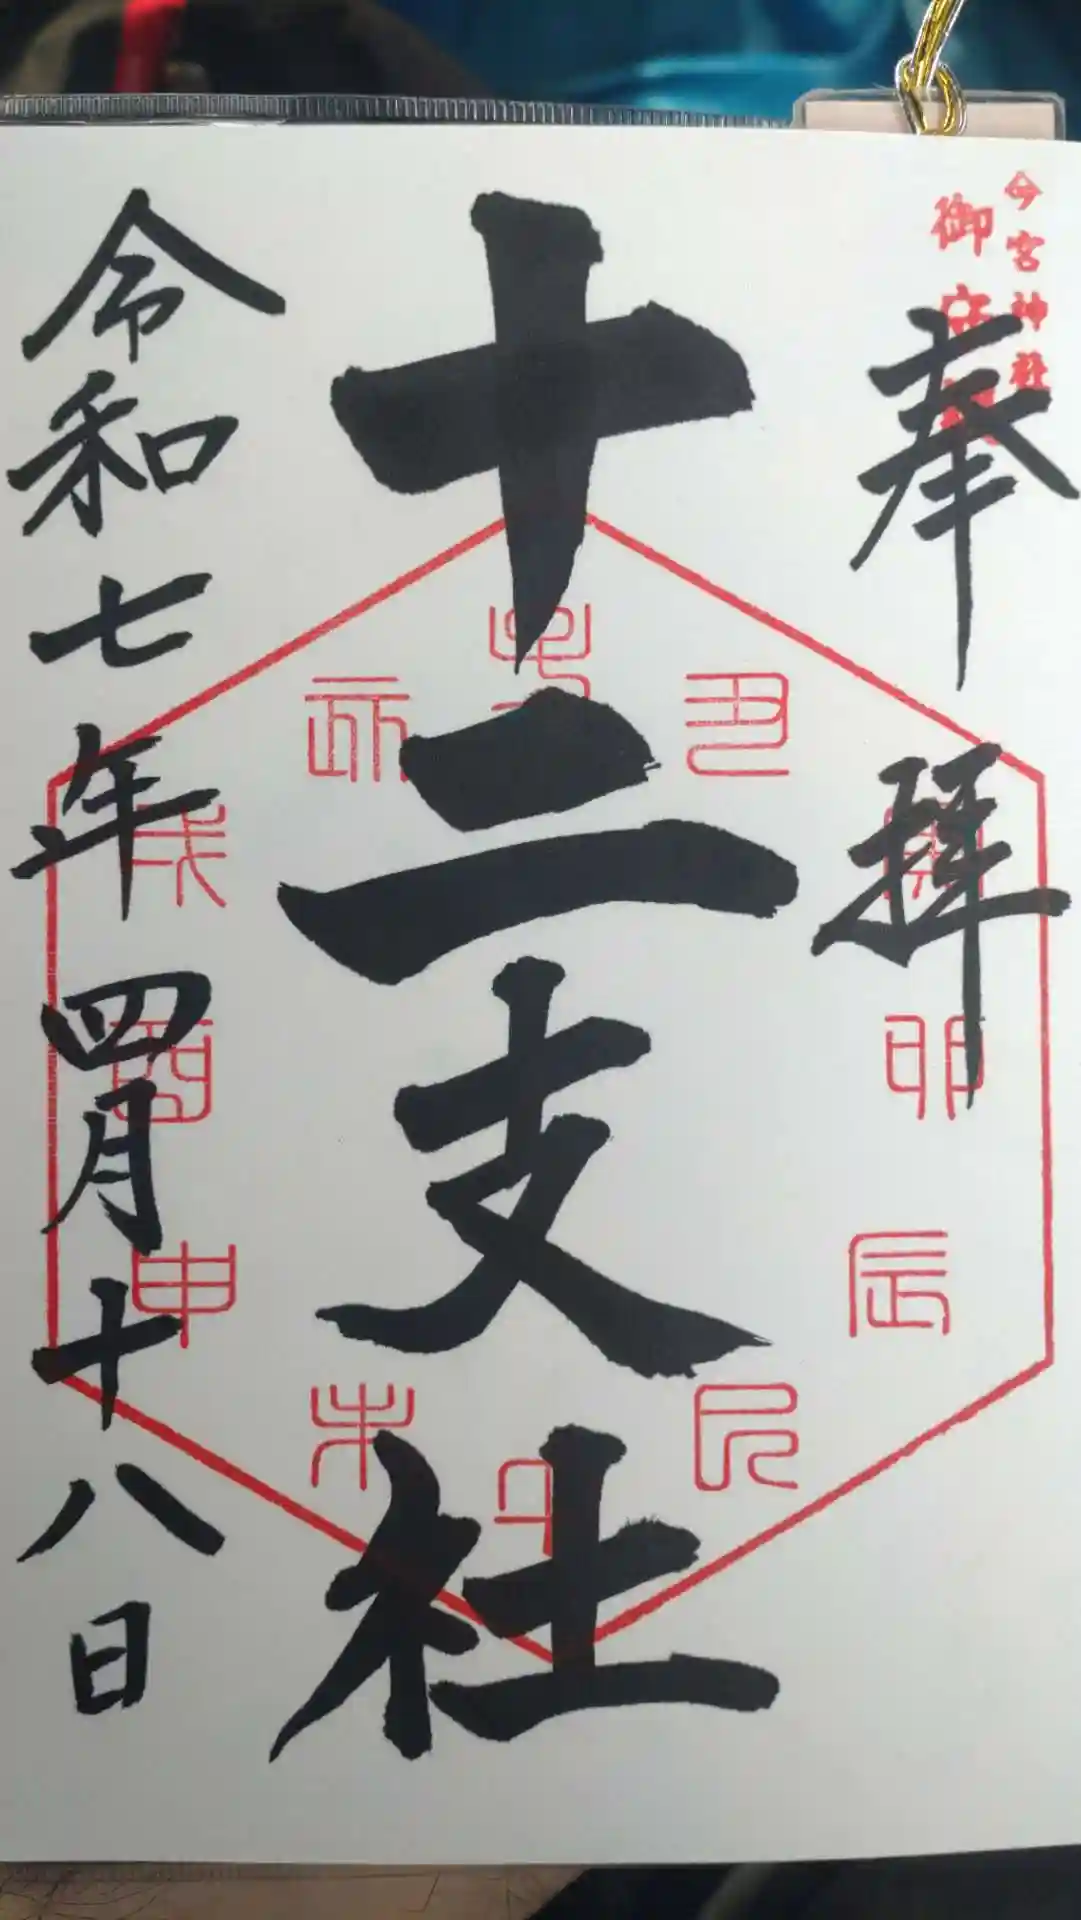 今宮神社
御
奉拝
十二支社
令和七年四月十八日
子
丑
卯
辰
巳
午
未
申
酉
戌
亥